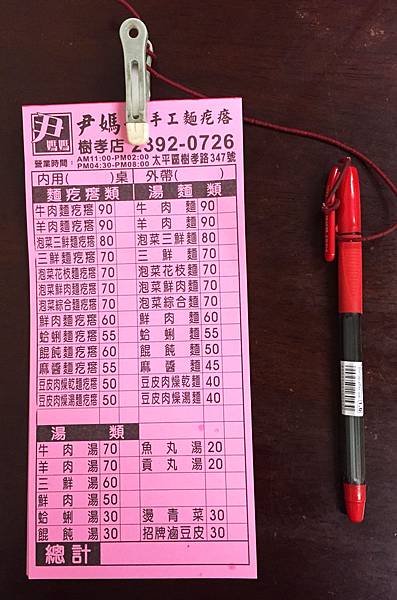 尹
媽媽
尹媽 手工麵疙瘩
樹孝店 2392-0726
營業時間：AM11:00-PM02:00
PM04:30-PM08:00 太平區樹孝路347號
內用( )桌 外帶( )
麵疙瘩類 湯麵類
牛肉麵疙瘩 90 牛肉麵 90
羊肉麵疙瘩 90 羊肉麵 90
泡菜三鮮麵疙瘩 80 泡菜三鮮麵 80
三鮮麵疙瘩 70 三鮮麵 70
泡菜花枝麵疙瘩 70 泡菜花枝麵 70
泡菜鮮肉麵疙瘩 70 泡菜鮮肉麵 70
泡菜綜合麵疙瘩 70 泡菜綜合麵 70
鮮肉麵疙瘩 60 鮮肉麵 60
蛤蜊麵疙瘩 55 蛤蜊麵 55
餛飩麵疙瘩 60 餛飩麵 50
麻醬麵疙瘩 55 麻醬麵 45
豆皮肉燥乾麵疙瘩 50 豆皮肉燥乾麵 40
豆皮肉燥湯麵疙瘩 50 豆皮肉燥湯麵 40
湯類
牛肉湯 70 魚丸湯 20
羊肉湯 70 貢丸湯 20
三鮮湯 60
鮮肉湯 50
蛤蜊湯 30 燙青菜 30
餛飩湯 30 招牌滷豆皮 30
總計